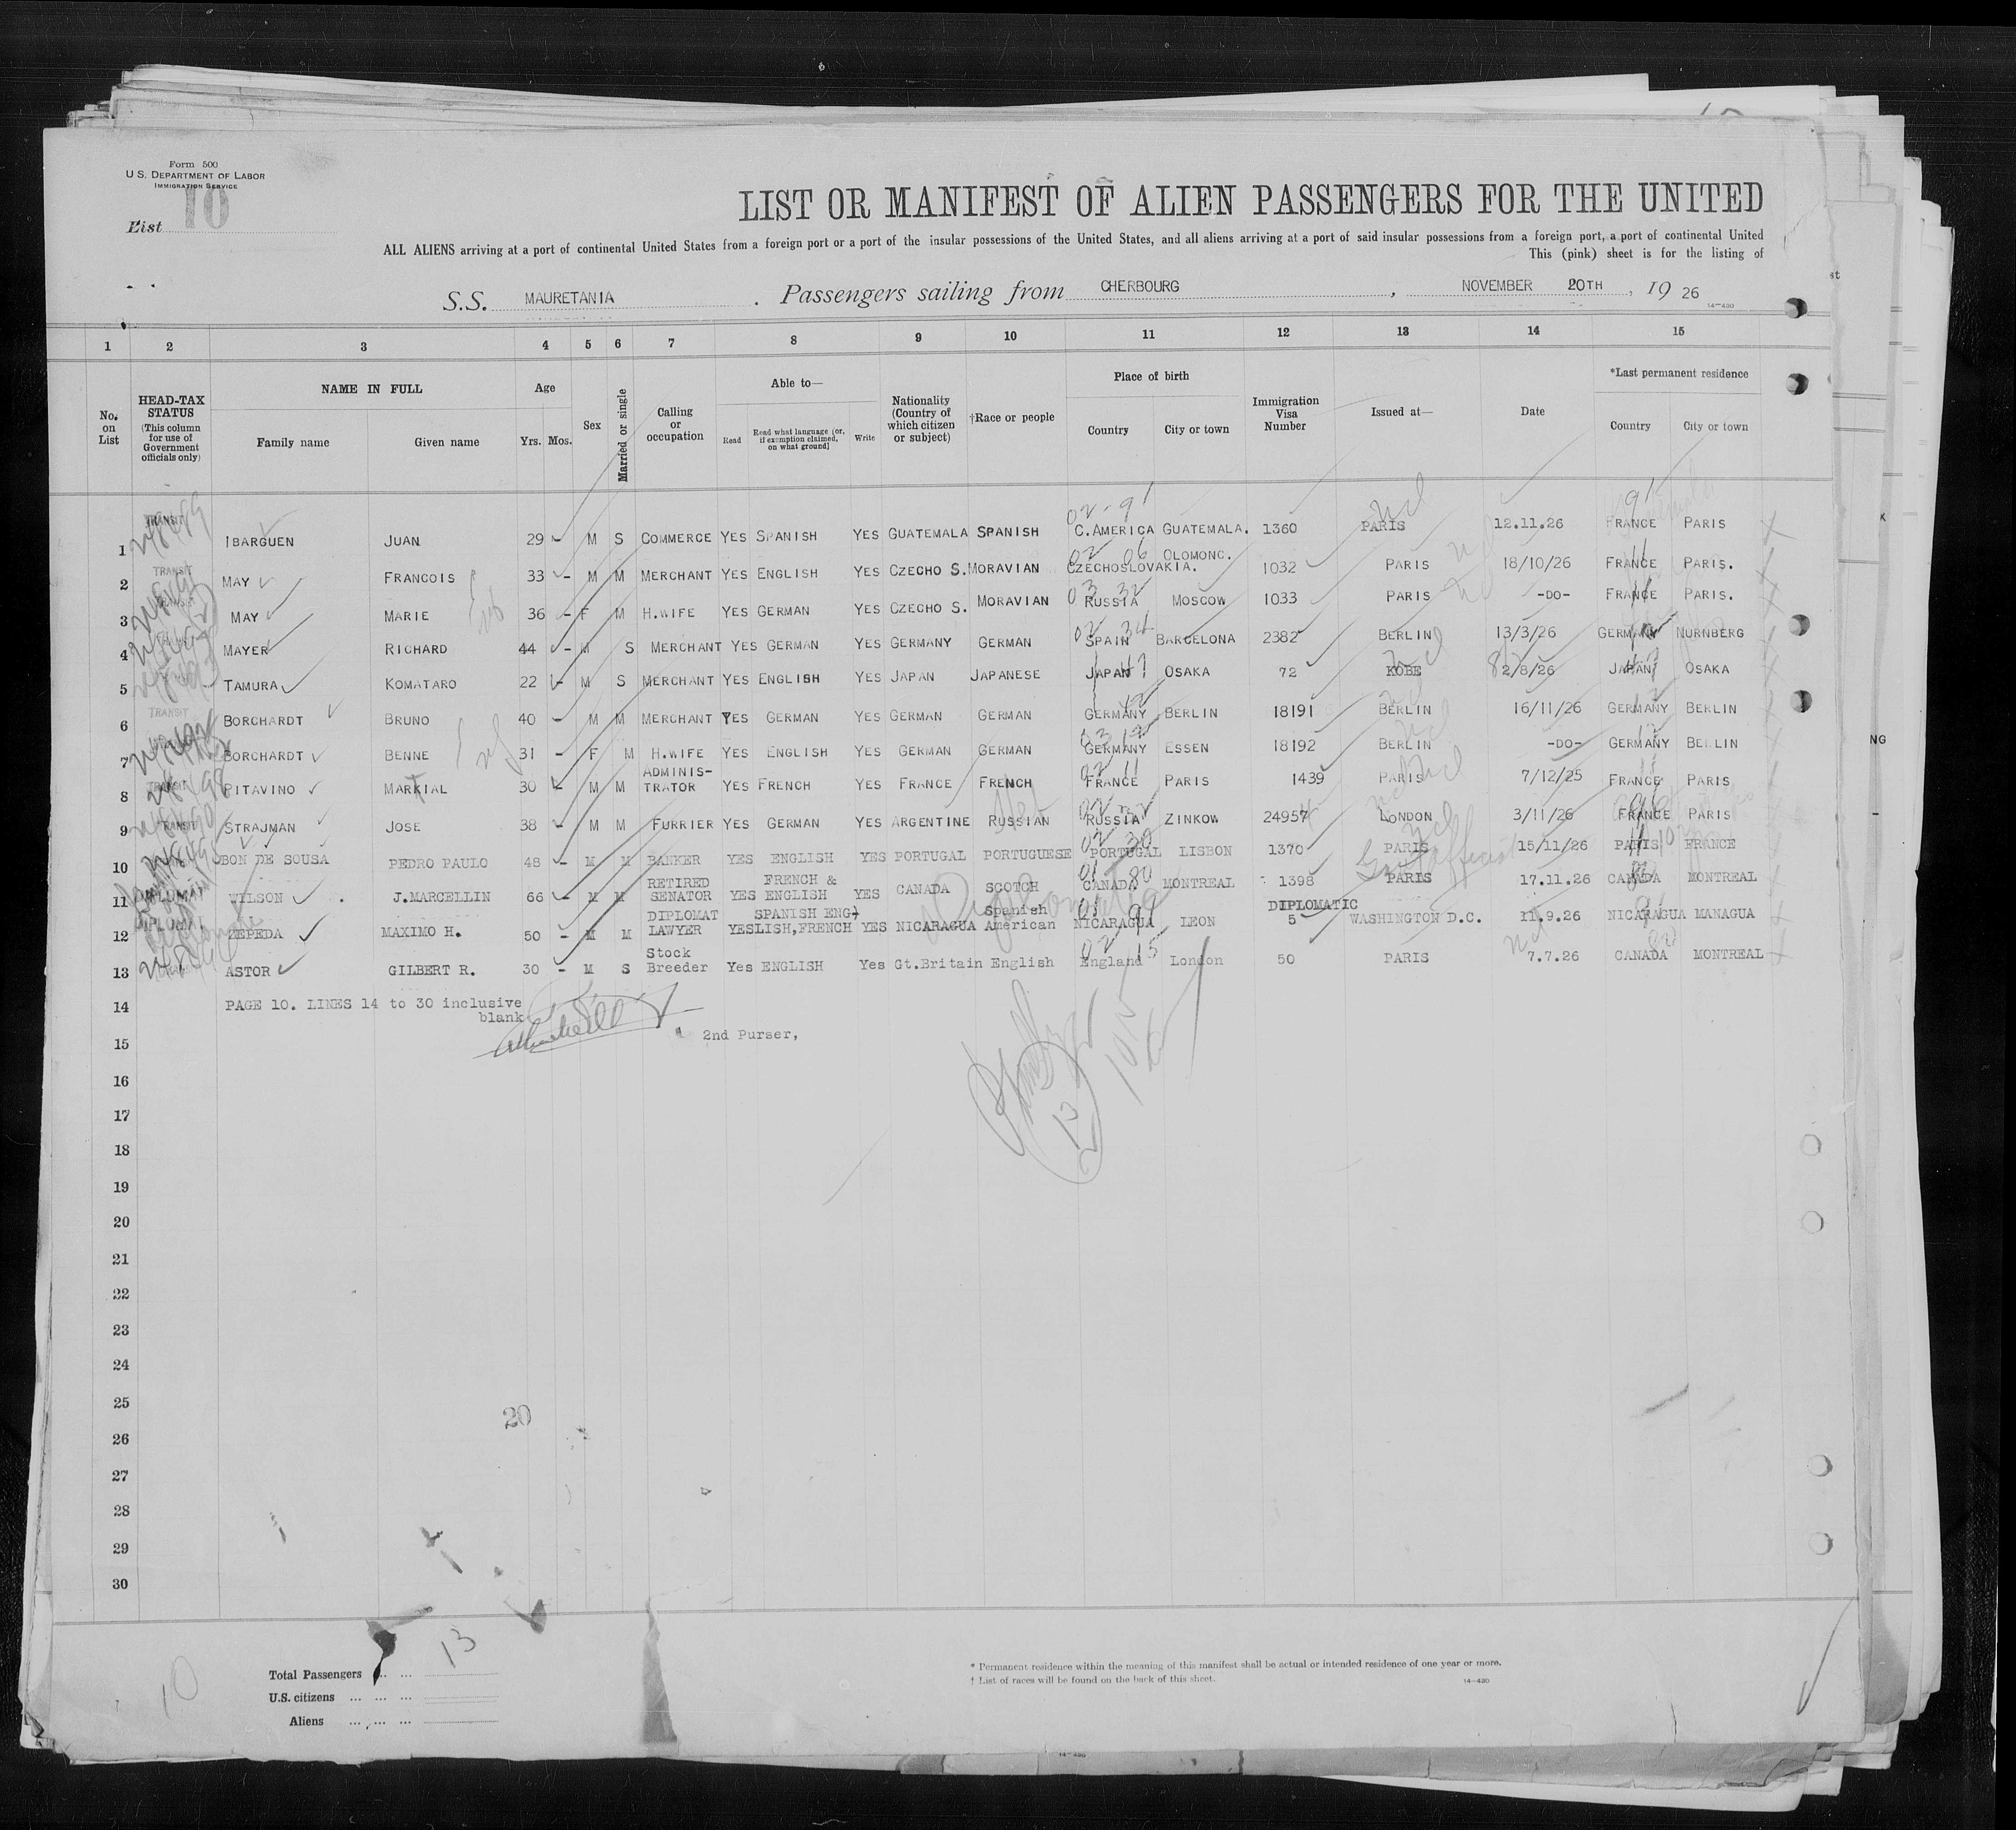 Form 500
U.S. DEPARTMENT OF LABOR
IMMIGRATION SERVICE
List 10
LIST OR MANIFEST OF ALIEN PASSENGERS FOR THE UNITED
ALL ALIENS arriving at a port of continental United States from a foreign port or a port of the insular possessions of the United States, and all aliens arriving at a port of said insular possessions from a foreign port, a port of continental United
This (pink) sheet is for the listing of
S.S. MAURETANIA . Passengers sailing from CHERBOURG , NOVEMBER 20TH , 19 26
14—430
1 2 3 4 5 6 7 8 9 10 11 12 13 14 15
No. on List
HEAD-TAX STATUS (This column for use of Government officials only)
NAME IN FULL
Family name Given name
Age
Yrs. Mos.
Sex
Married or single
Calling or occupation
Able to—
Read Read what language (or, if exemption claimed, on what ground) Write
Nationality (Country of which citizen or subject)
†Race or people
Place of birth
Country City or town
Immigration Visa Number
Issued at—
Date
*Last permanent residence
Country City or town
1 TRANSIT IBARGUEN JUAN 29 M S COMMERCE YES SPANISH YES GUATEMALA SPANISH C.AMERICA GUATEMALA. 1360 PARIS 12.11.26 FRANCE PARIS
2 TRANSIT MAY FRANCOIS 33 - M M MERCHANT YES ENGLISH YES CZECHO S. MORAVIAN CZECHOSLOVAKIA. OLOMONC. 1032 PARIS 18/10/26 FRANCE PARIS.
3 TRANSIT MAY MARIE 36 - F M H.WIFE YES GERMAN YES CZECHO S. MORAVIAN RUSSIA MOSCOW 1033 PARIS -DO- FRANCE PARIS.
4 MAYER RICHARD 44 - M S MERCHANT YES GERMAN YES GERMANY GERMAN SPAIN BARCELONA 2382 BERLIN 13/3/26 GERMANY NURNBERG
5 TAMURA KOMATARO 22 - M S MERCHANT YES ENGLISH YES JAPAN JAPANESE JAPAN OSAKA 72 KOBE 2/8/26 JAPAN OSAKA
6 TRANSIT BORCHARDT BRUNO 40 - M M MERCHANT YES GERMAN YES GERMAN GERMAN GERMANY BERLIN 18191 BERLIN 16/11/26 GERMANY BERLIN
7 BORCHARDT BENNE 31 - F M H.WIFE YES ENGLISH YES GERMAN GERMAN GERMANY ESSEN 18192 BERLIN -DO- GERMANY BERLIN
8 TRANSIT PITAVINO MARTIAL 30 - M M ADMINIS-TRATOR YES FRENCH YES FRANCE FRENCH FRANCE PARIS 1439 PARIS 7/12/25 FRANCE PARIS
9 TRANSIT STRAJMAN JOSE 38 - M M FURRIER YES GERMAN YES ARGENTINE RUSSIAN RUSSIA ZINKOW 24957 LONDON 3/11/26 FRANCE PARIS
10 BON DE SOUSA PEDRO PAULO 48 - M M BANKER YES ENGLISH YES PORTUGAL PORTUGUESE PORTUGAL LISBON 1370 PARIS 15/11/26 PARIS FRANCE
11 DIPLOMAT WILSON J.MARCELLIN 66 - M M RETIRED SENATOR YES FRENCH & ENGLISH YES CANADA SCOTCH CANADA MONTREAL 1398 PARIS 17.11.26 CANADA MONTREAL
12 DIPLOMAT ZEPEDA MAXIMO H. 50 - M M DIPLOMAT LAWYER YES SPANISH ENG-LISH, FRENCH YES NICARAGUA Spanish American NICARAGUA LEON DIPLOMATIC 5 WASHINGTON D.C. 11.9.26 NICARAGUA MANAGUA
13 ASTOR GILBERT R. 30 - M S Stock Breeder Yes ENGLISH Yes Gt.Britain English England London 50 PARIS 7.7.26 CANADA MONTREAL
14 PAGE 10. LINES 14 to 30 inclusive
blank
15 2nd Purser,
16
17
18
19
20
21
22
23
24
25
20
26
27
28
29
30
10
Total Passengers ... ... 13
U.S. citizens ... ... ...
Aliens ... ... ...
* Permanent residence within the meaning of this manifest shall be actual or intended residence of one year or more.
† List of races will be found on the back of this sheet.
14—430